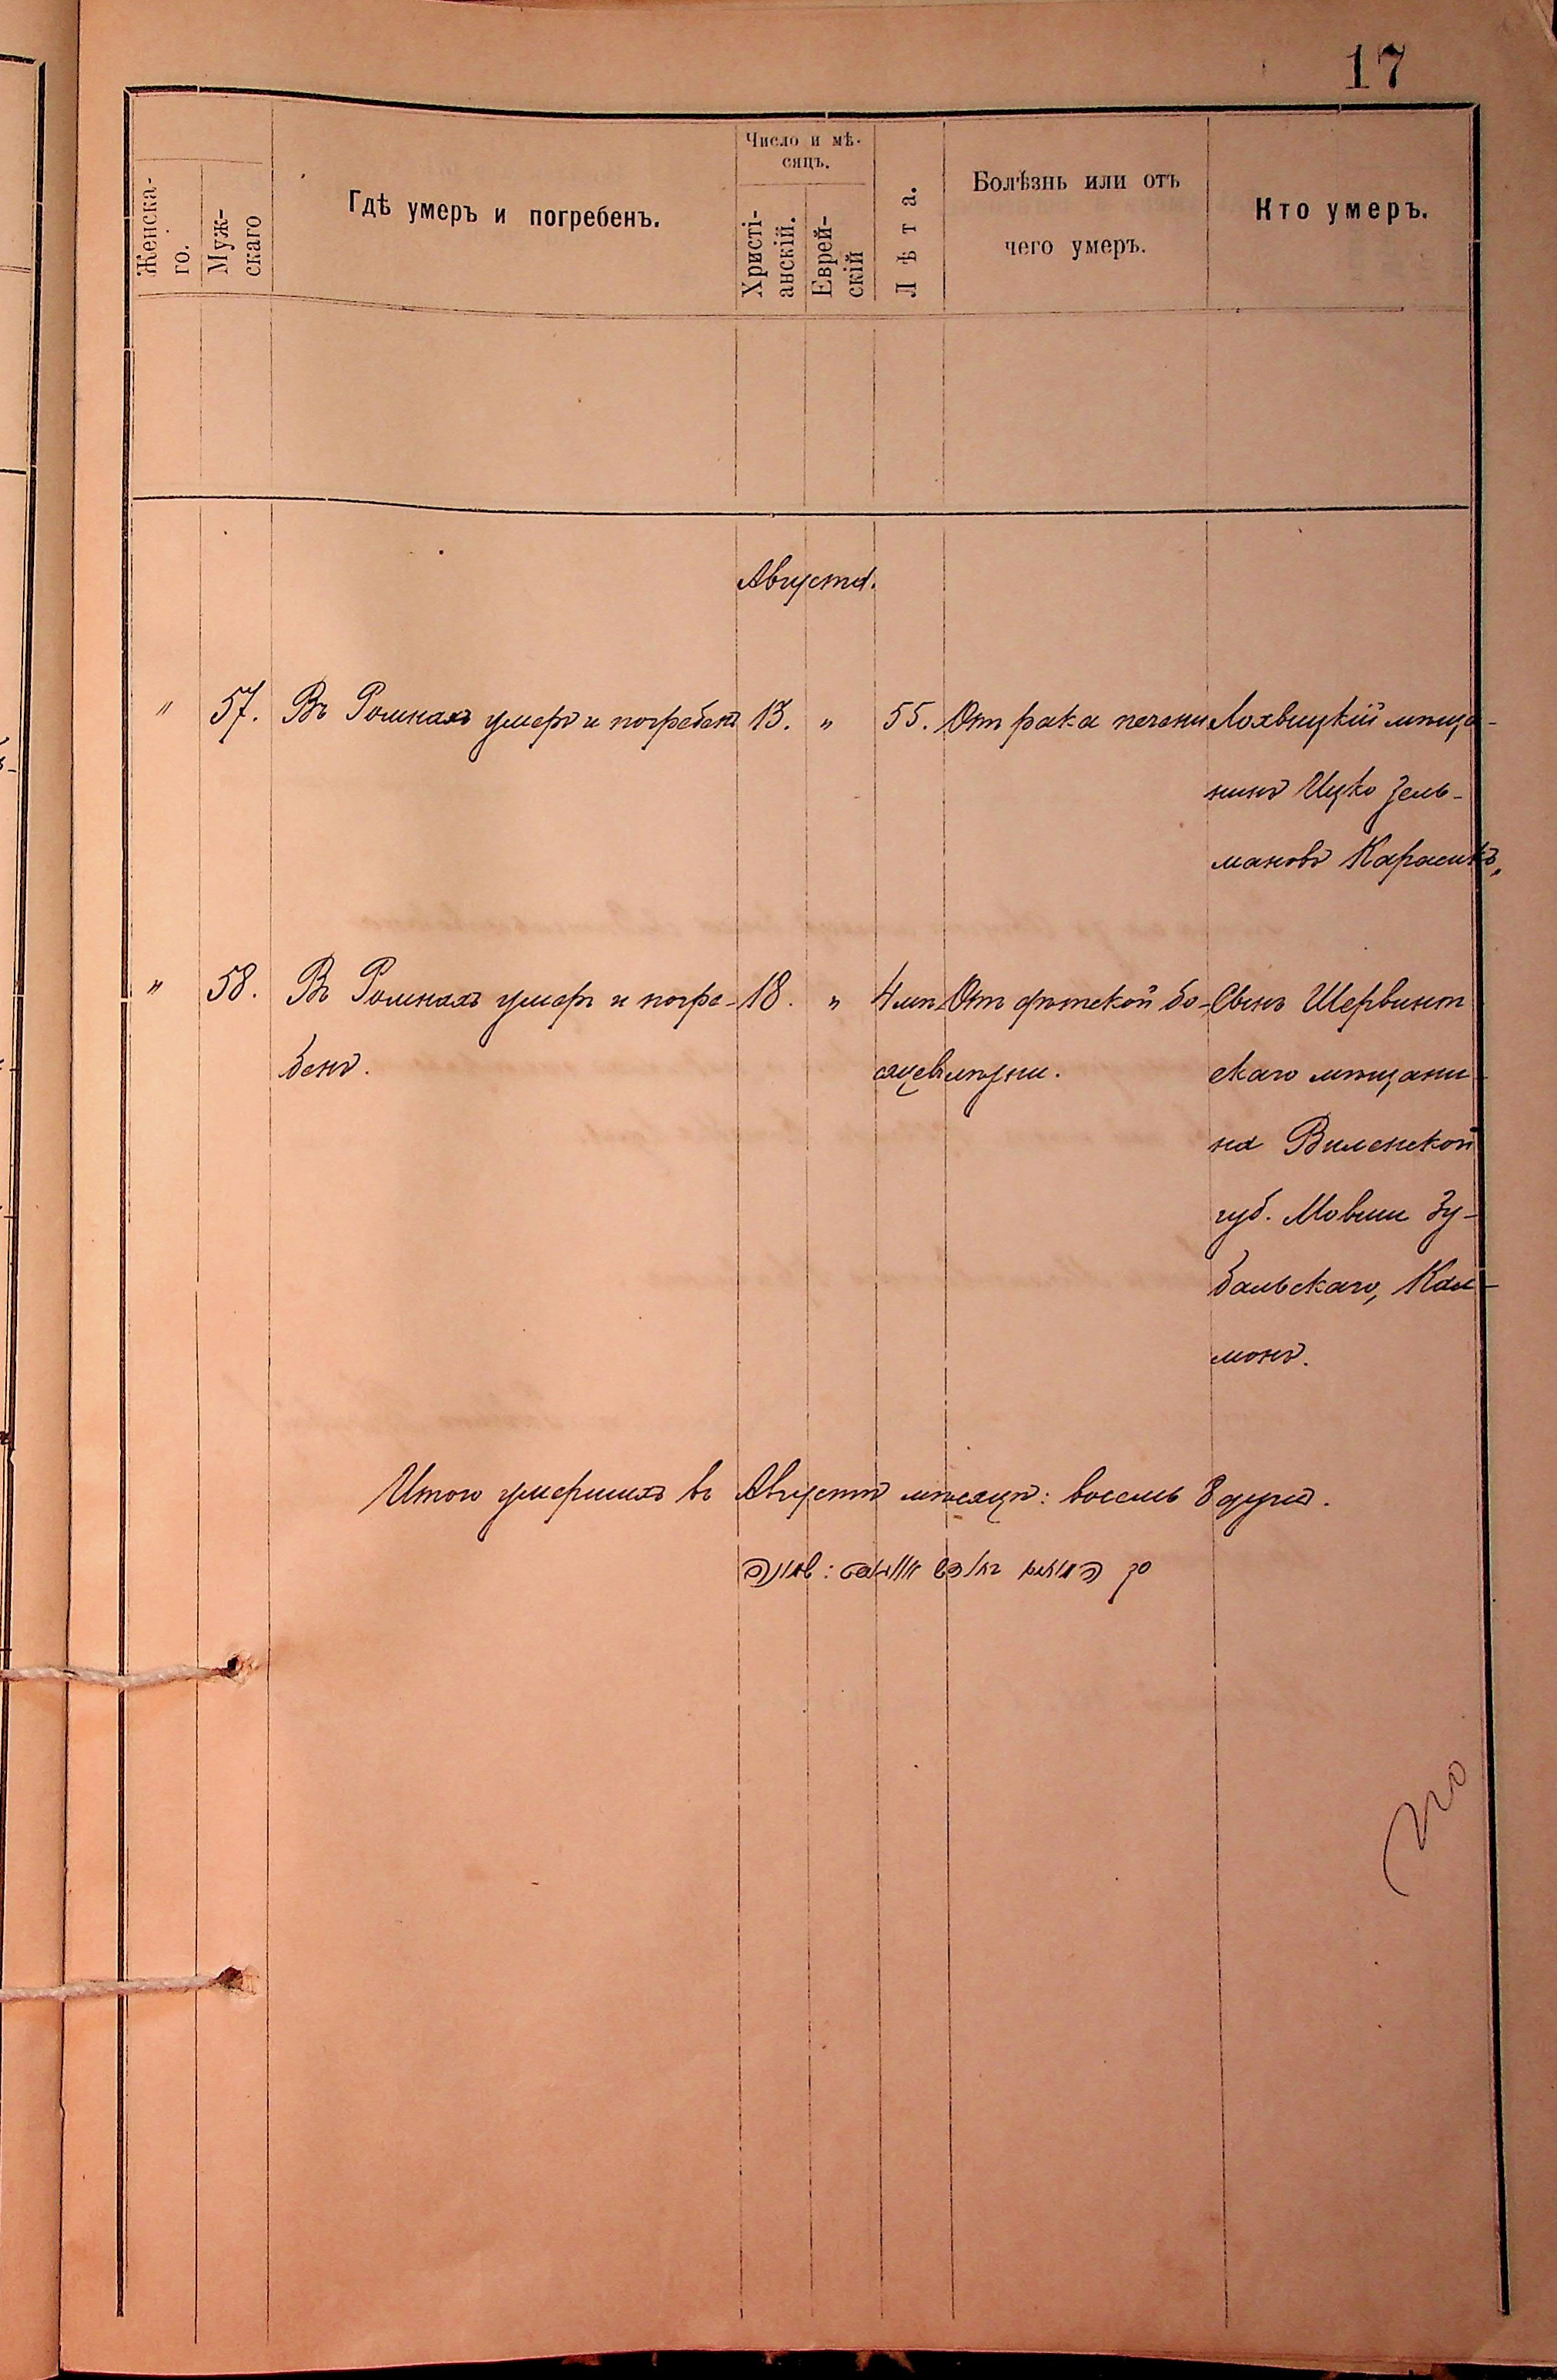 17
Женска-
го.
Муж-
скаго
Гдѣ умеръ и погребенъ.
Число и мѣ-
сяцъ.
Христі-
анскій.
Еврей-
скій
Лѣта.
Болѣзнь или отъ
чего умеръ.
Кто умеръ.
Августа.
" 57. Въ Ромнахъ умеръ и погребенъ 13. " 55. Отъ рака печени Лохвицкій мѣща-
нинъ Ицко Зель-
мановъ Карасикъ,
" 58. Въ Ромнахъ умеръ и погре- 18. " 4 мѣ- Отъ дѣтской бо- Сынъ Ширвинт
бенъ. сяцевъ лѣзни. скаго мѣщани-
на Виленской
губ. Мовши Зу-
бальскаго, Кал-
монъ.
Итого умершихъ въ Августѣ мѣсяцѣ: восемь 8 душъ.